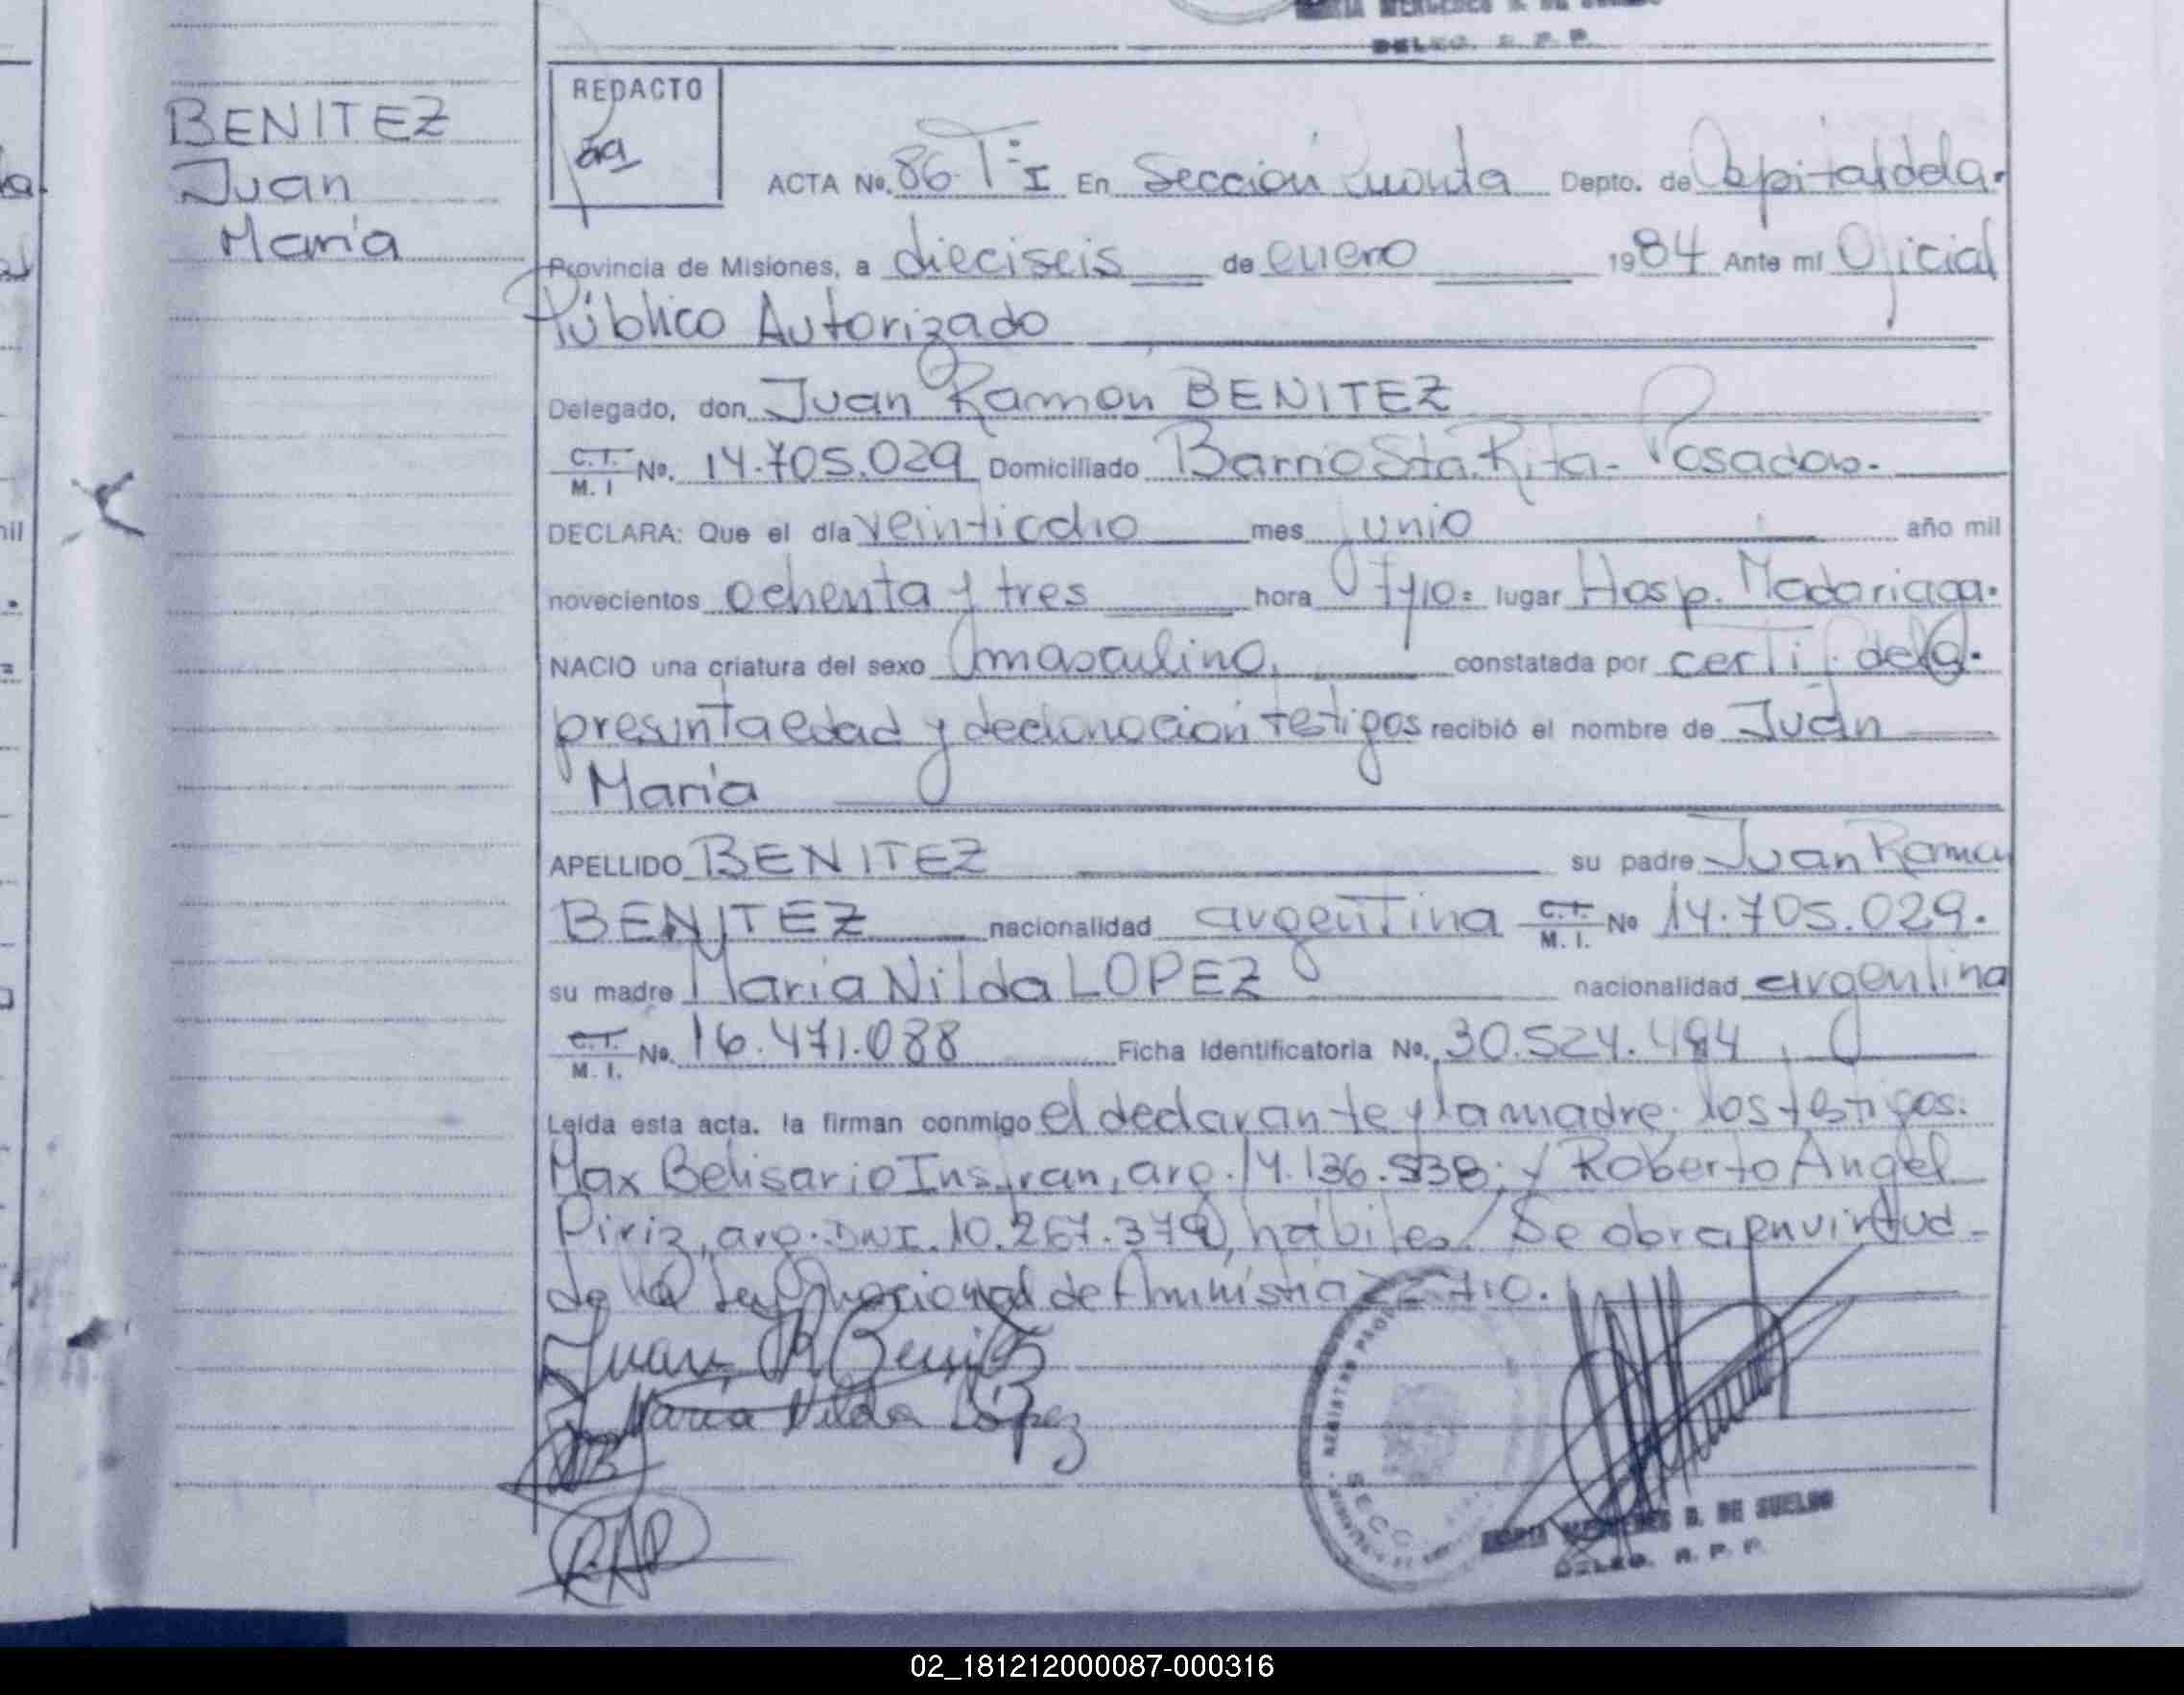 DELEG. R. P. P.
BENITEZ
Juan
María
REDACTO
ACTA No. 86 T°I En Sección Cuarta Depto. de Capital de la.
Provincia de Misiones, a dieciseis de enero 1984 Ante mí Oficial
Público Autorizado
Delegado, don Juan Ramon BENITEZ
C.T. M. I No. 14.705.029 Domiciliado Barrio Sta. Rita- Posadas.-
DECLARA: Que el día veintiocho mes junio año mil
novecientos ochenta y tres hora 7y10= lugar Hosp. Madariaga.
NACIO una criatura del sexo masculino, constatada por certif. de la.
presunta edad y declaración testigos recibió el nombre de Juan
María
APELLIDO BENITEZ su padre Juan Ramon
BENITEZ nacionalidad argentina C.T. M. I. No 14.705.029.
su madre María Nilda LOPEZ nacionalidad argentina
C.T. M. I. No. 16.471.088 Ficha Identificatoria No. 30.524.494
Leída esta acta. la firman conmigo el declarante y la madre, los testigos.
Max Belisario Insfran, arg. 14.136.538; y Roberto Angel
Piriz, arg. DNI. 10.267.379, hábiles/ Se obra en virtud-
de la Ley nacional de Amnistia 22.410.
Juan R Benitez
Maria Nilda López
RAP
SECC.
MARIA MERCEDES D. DE SUELDO
DELEG. R. P. P.
02_181212000087-000316